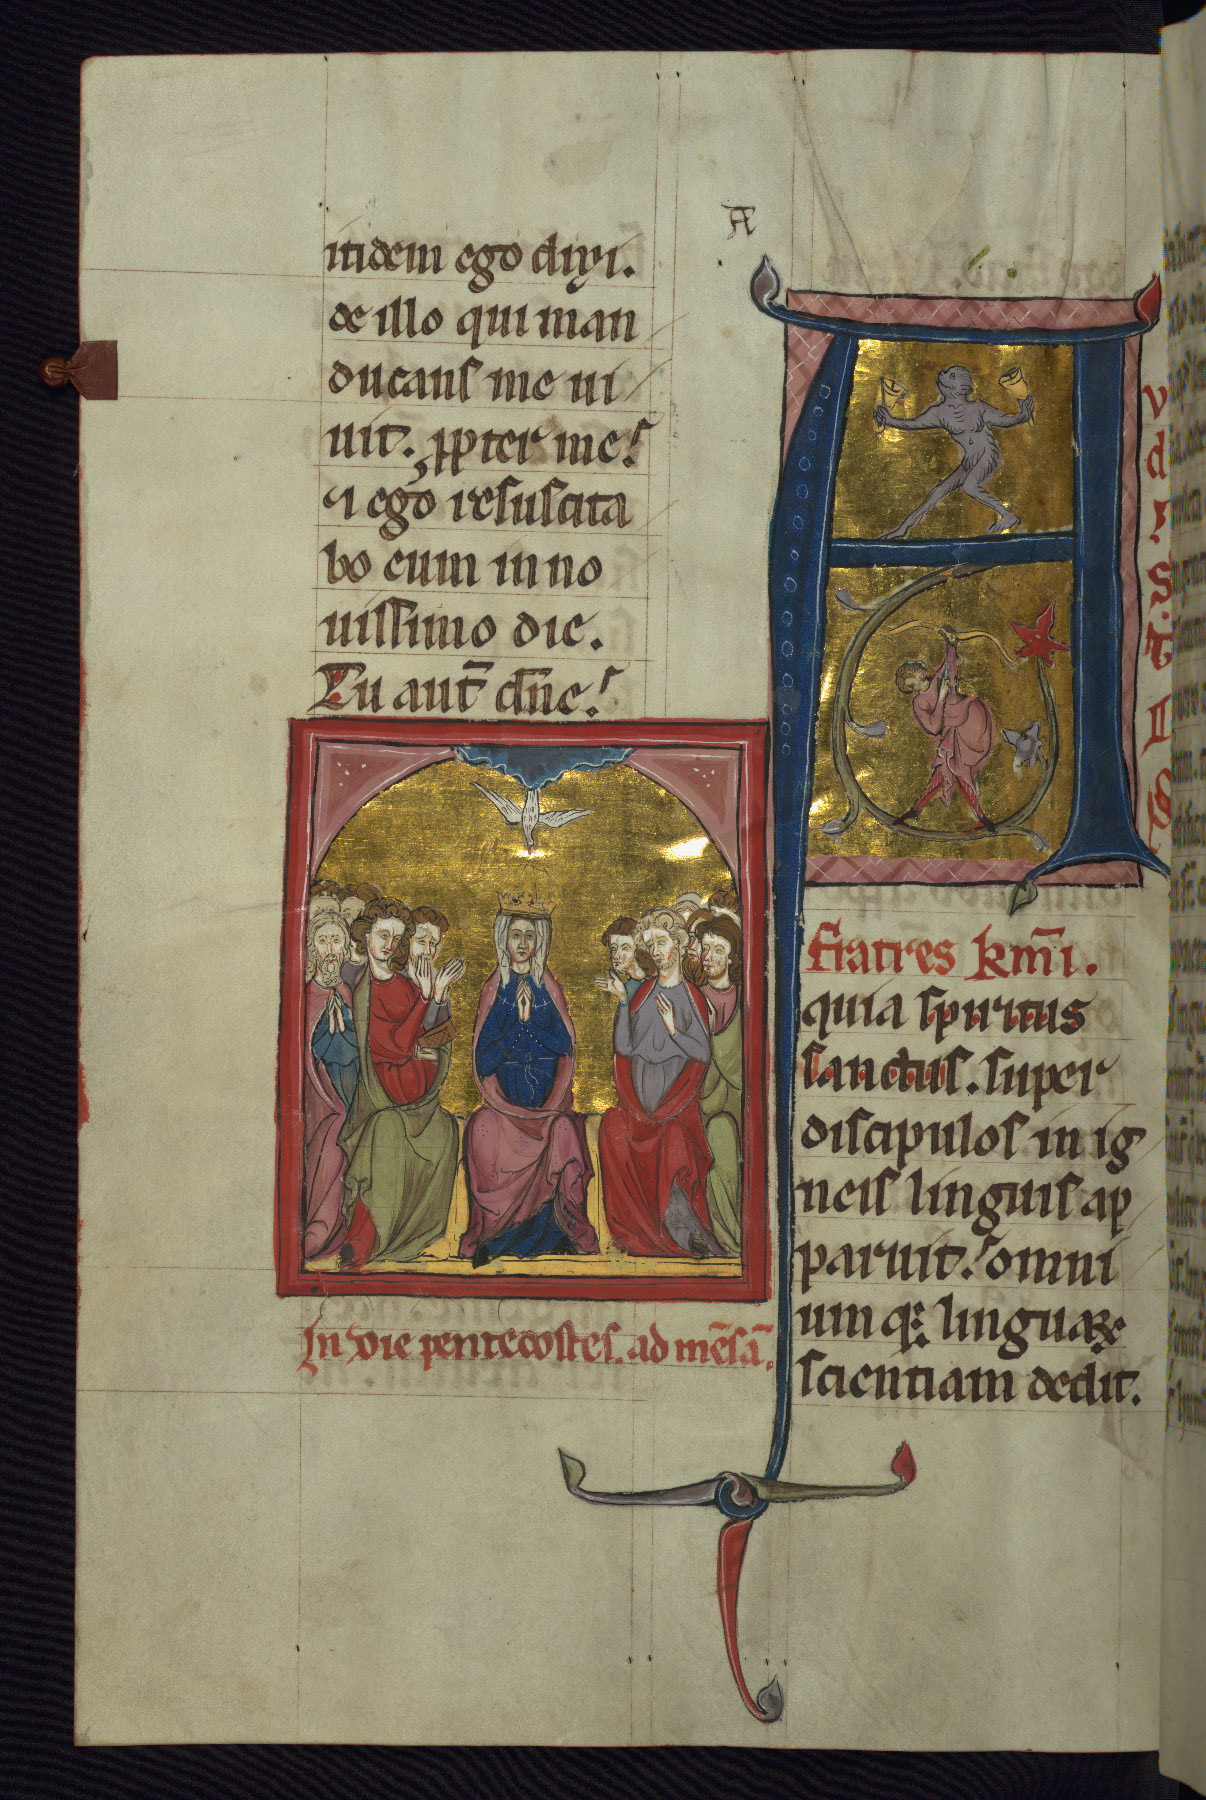 itidem ego dixi.
de illo qui man
ducans me ui
uit. ꝓpter me.
⁊ ego resuscita
bo eum in no
uissimo die.
Tu aut̄ dn̄e.
In die pentecostes. ad mēsā.
A
UDISTIS
fratres kmī.
quia spiritus
sanctus. super
discipulos in ig
neis linguis ap
paruit. omni
um q; linguaꝝ
scientiam dedit.